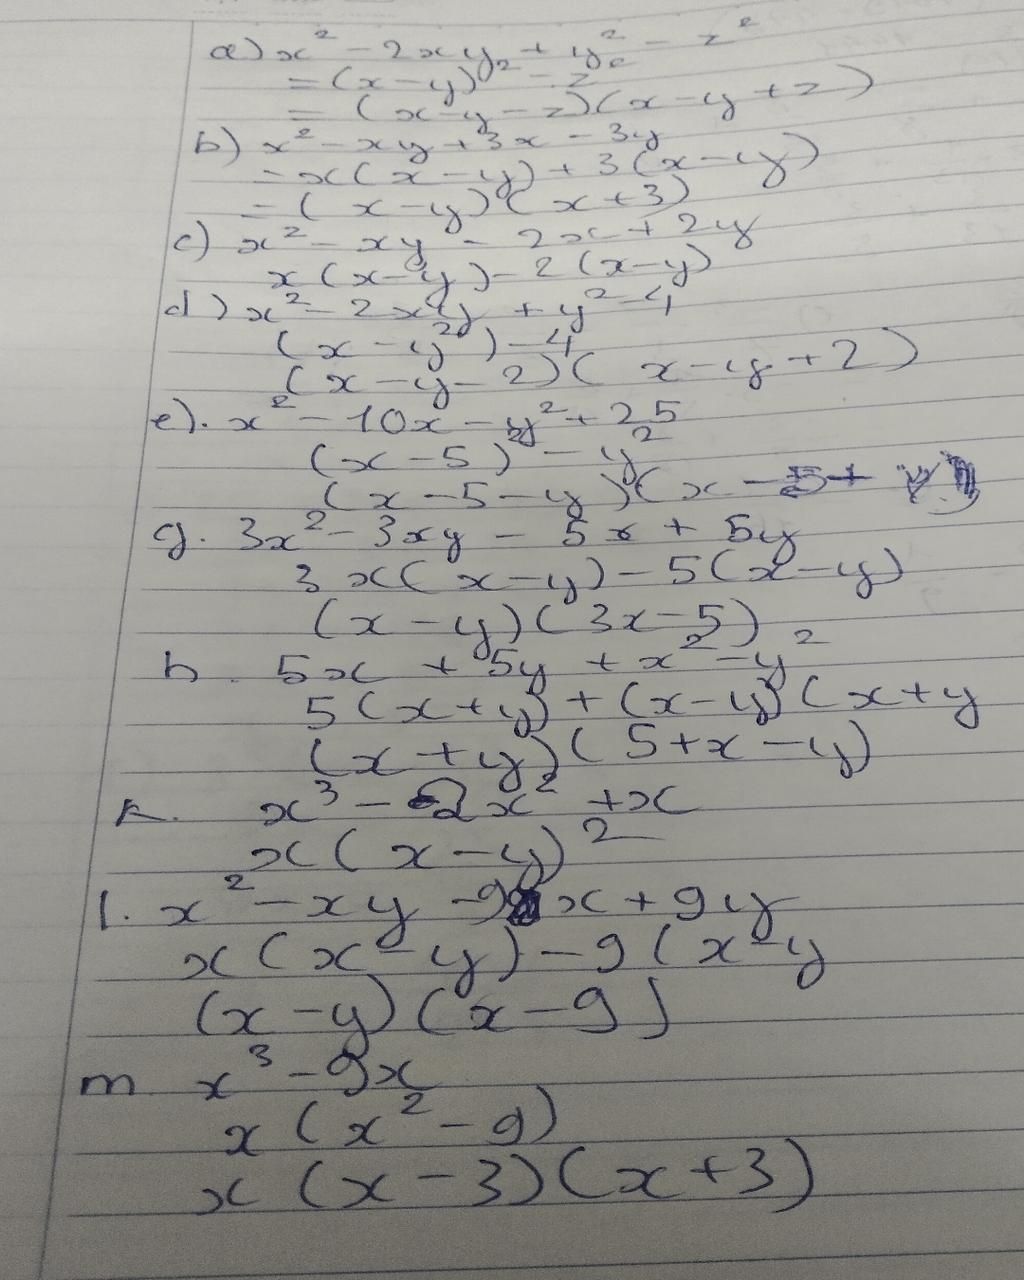 a) x² - 2xy + y² - z²
= (x - y)² - z²
= (x - y - z)(x - y + z)
b) x² - xy + 3x - 3y
= x(x - y) + 3(x - y)
= (x - y)(x + 3)
c) x² - xy - 2x + 2y
x(x - y) - 2(x - y)
d) x² - 2xy + y² - 4
(x - y²) - 4
(x - y - 2)(x - y + 2)
e). x² - 10x - y² + 25
(x - 5)² - y²
(x - 5 - y)(x - 5 + y)
g. 3x² - 3xy - 5x + 5y
3x(x - y) - 5(x - y)
(x - y)(3x - 5)
h. 5x + 5y + x² - y²
5(x + y) + (x - y)(x + y
(x + y)(5 + x - y)
k. x³ - 2x² + x
x(x - y)²
l. x² - xy - 9x + 9y
x(x - y) - 9(x - y
(x - y)(x - 9)
m x³ - 9x
x(x² - 9)
x(x - 3)(x + 3)